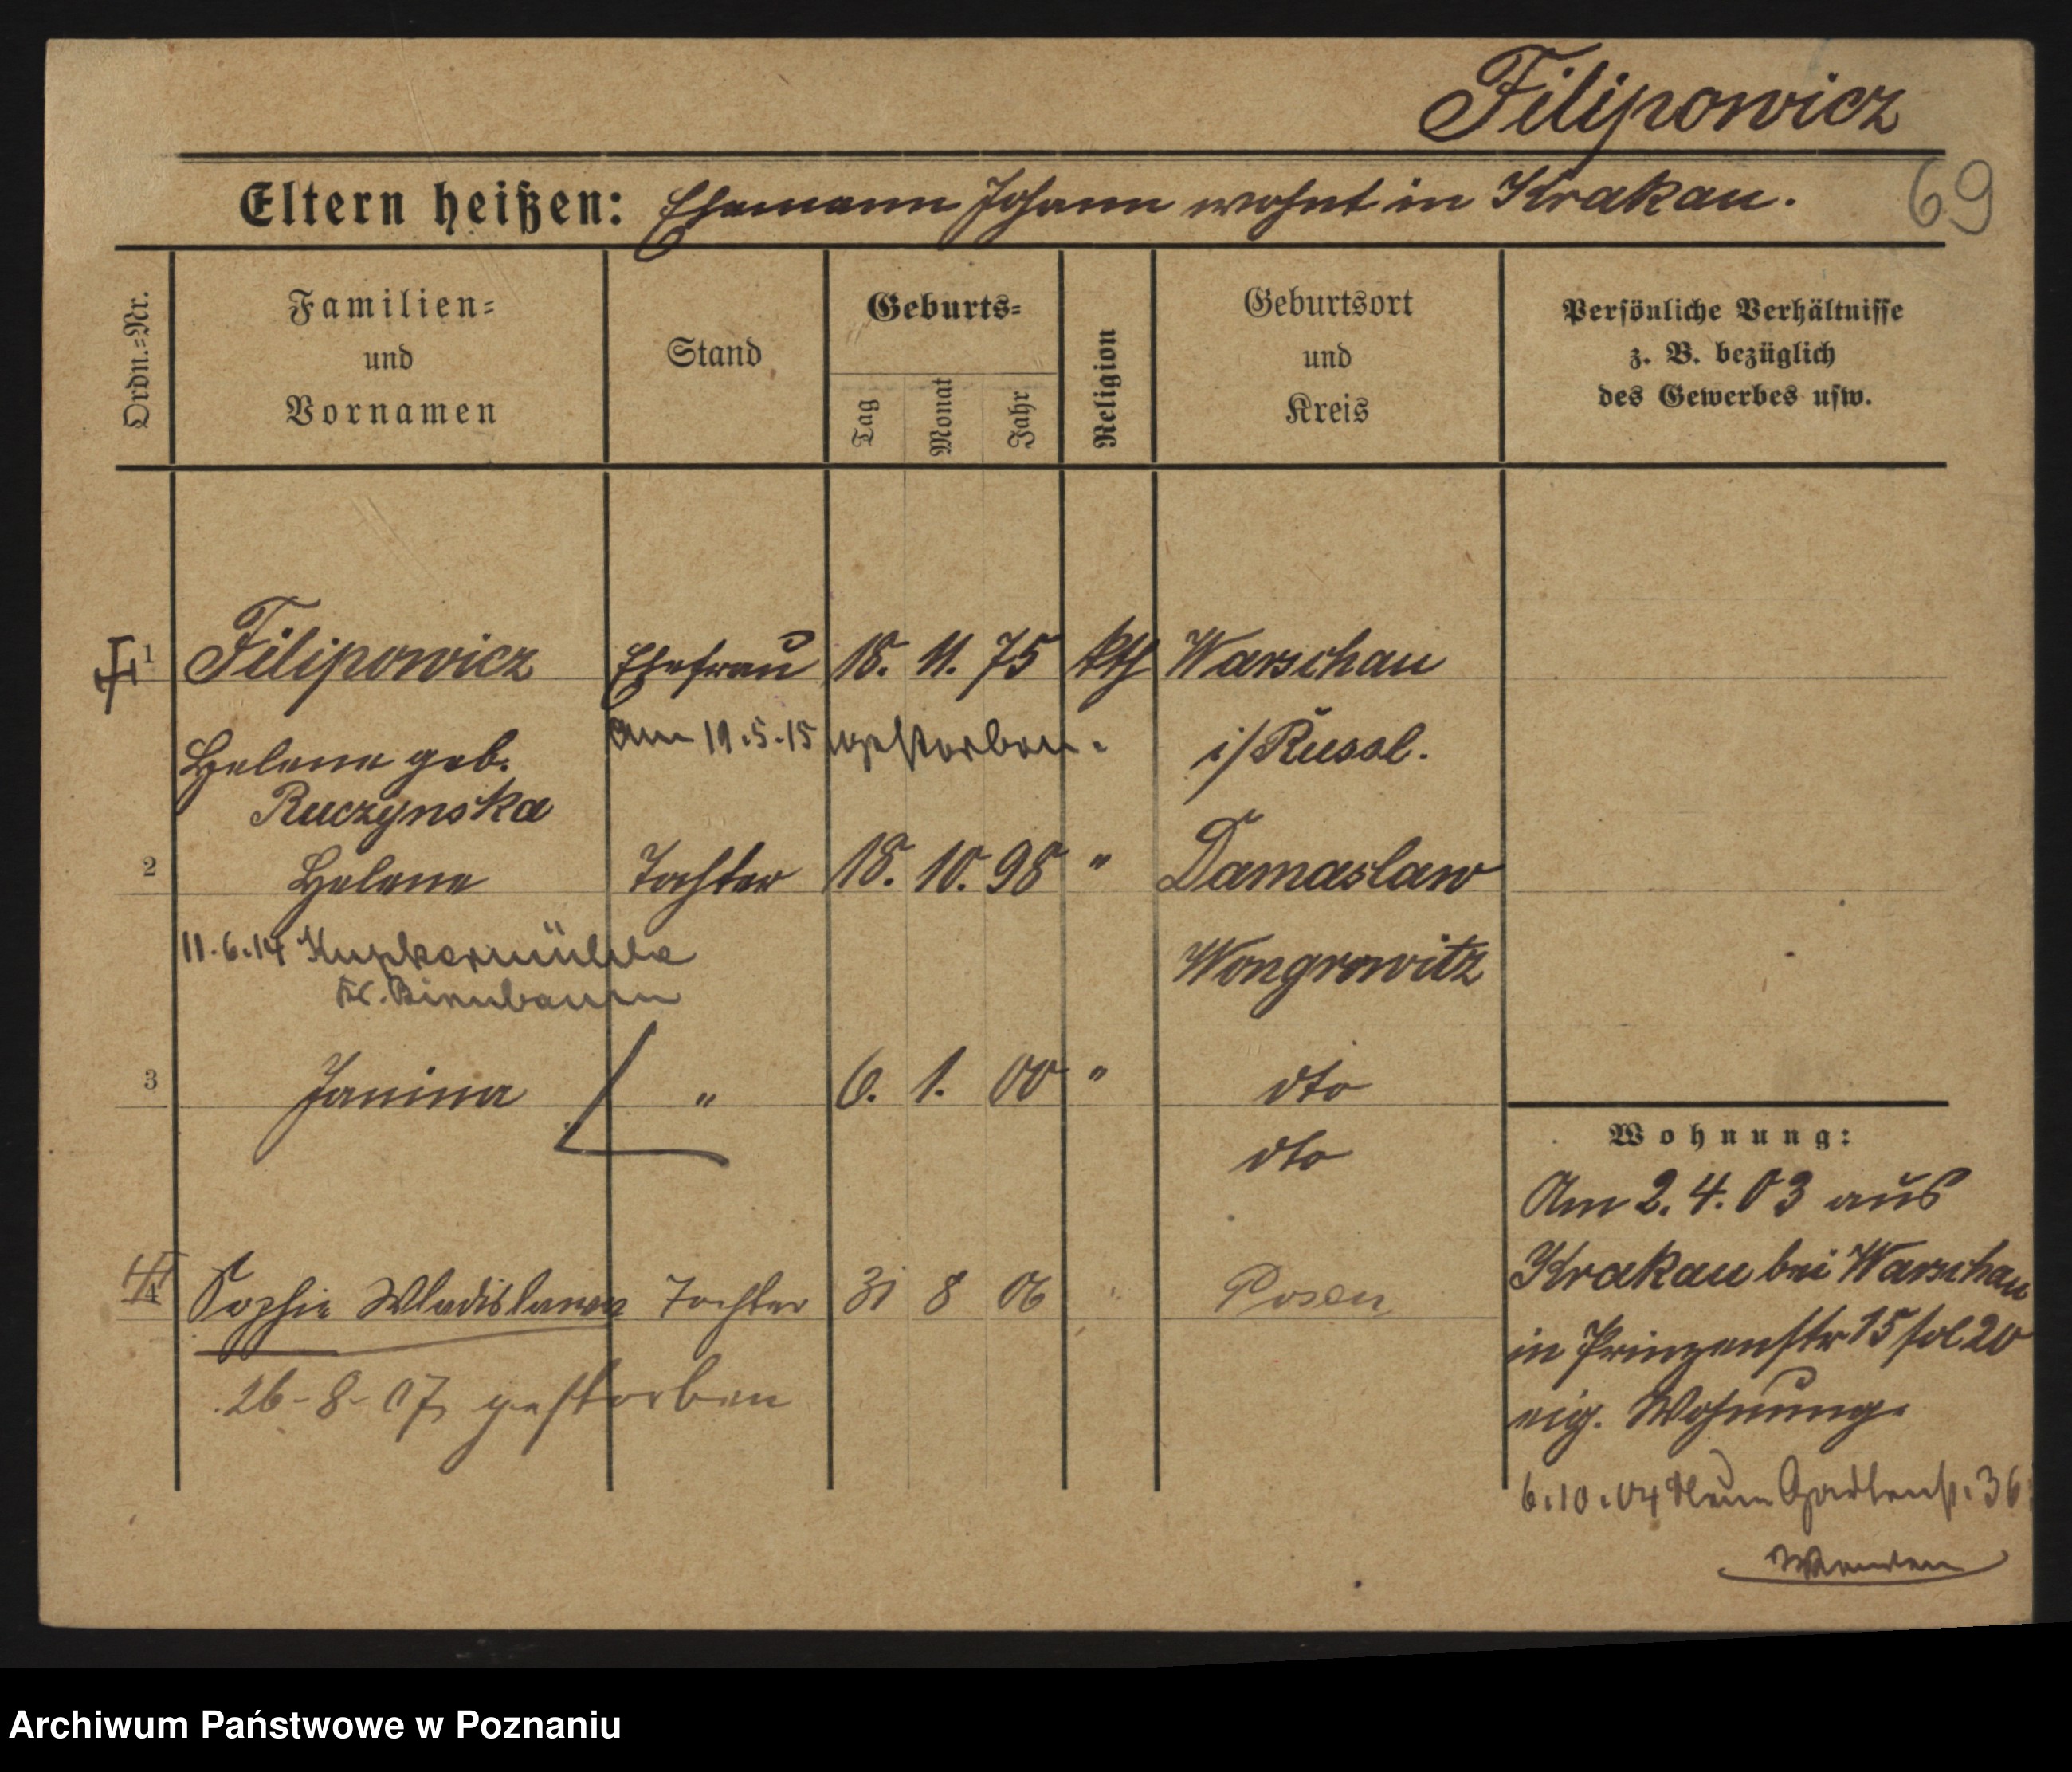 Filipowicz
69
Eltern heißen: Ehemann Johann wohnt in Krakau.
Ordn.=Nr.
Familien=
und
Vornamen
Stand
Geburts=
Tag
Monat
Jahr
Religion
Geburtsort
und
Kreis
Persönliche Verhältnisse
z. B. bezüglich
des Gewerbes usw.
1 Filipowicz Ehefrau 18. 11. 75 kth Warschau
am 19.5.15 gestorben. i/Russl.
Helene geb.
Ruczynska
2 Helene Tochter 18. 10. 98 " Damaslaw
11.6.14 Kupkermühle Wongrowitz
Kr. Birnbaum
3 Janina " 6. 1. 00 " dto
dto
4 Sophie Wladislawa Tochter 31 8 06 " Posen
26-8-07 gestorben
Wohnung:
Am 2.4.03 aus
Krakau bei Warschau
in Prinzenstr 15 fol 20
eig. Wohnung.
6.10.04 Neue Gartenstr. 36